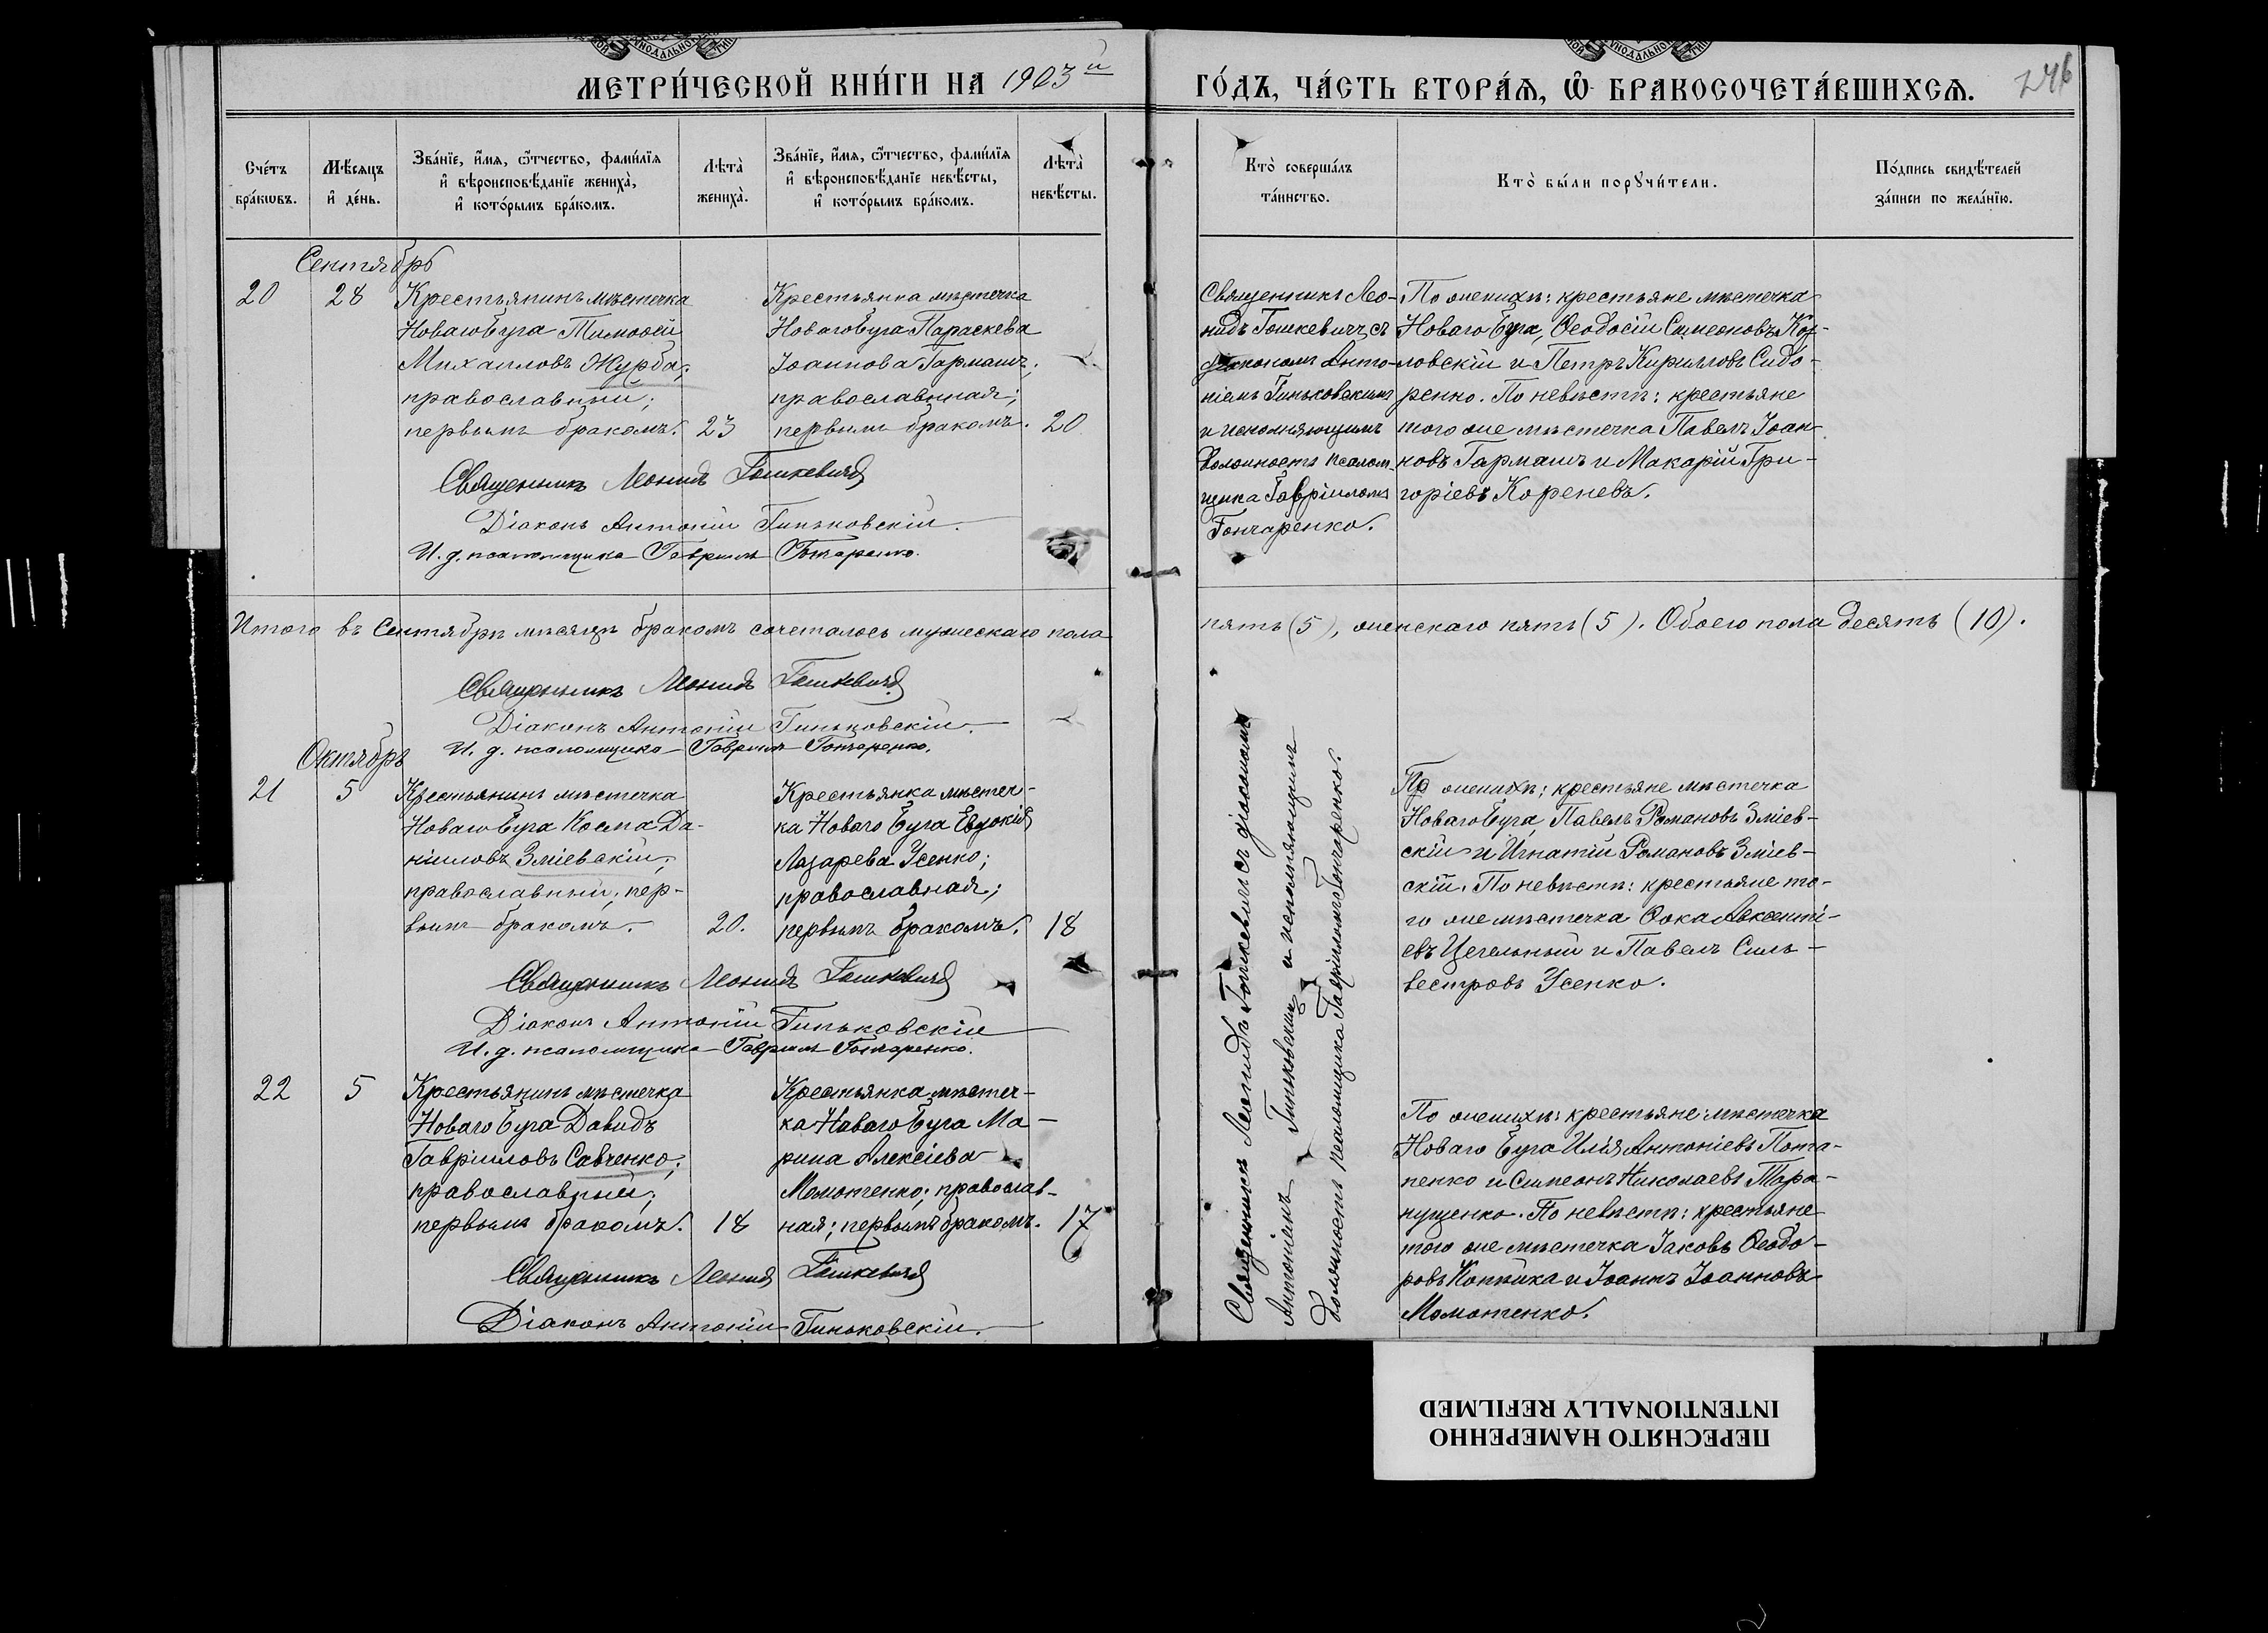 МЕТРИ́ЧЕСКОЙ КНИ́ГИ НА 1903й
ГО́ДЪ, ЧА́СТЬ ВТОРА́Ѧ, Ѡ БРАКОСОЧЕТА́ВШИХСѦ.
246
Сче́тъ
бра́кѡвъ.
Мѣ́сѧцъ
и҆ де́нь.
Зва́нїе, и҆́мѧ, ѻ҆́тчество, фами́лїѧ
и҆ вѣроисповѣ́данїе жениха̀,
и҆ кото́рымъ бра́комъ.
Лѣта̀
жениха̀.
Зва́нїе, и҆́мѧ, ѻ҆́тчество, фами́лїѧ
и҆ вѣроисповѣ́данїе невѣ́сты,
и҆ кото́рымъ бра́комъ.
Лѣта̀
невѣ́сты.
Кто̀ соверша́лъ
та́инство.
Кто̀ бы́ли порꙋчи́тели.
По́дпись свидѣ́телей
за́писи по жела́нїю.
Сентябрь
20
28
Крестьянинъ мѣстечка
Новаго Буга Тимоѳей
Михаиловъ Журба;
православный;
первымъ бракомъ.
23
Крестьянка мѣстечка
Новаго Буга Параскева
Іоаннова Гармашъ;
православная;
первымъ бракомъ.
20
Священникъ Лео-
нидъ Гошкевичъ, съ
діакономъ Анто-
ніемъ Гиньковскимъ
и исполняющимъ
должность псалом-
щика Гавріиломъ
Гончаренко.
По женихѣ: крестьяне мѣстечка
Новаго Буга, Ѳеодосій Симеоновъ Коз-
ловскій и Петръ Кирилловъ Сидо-
ренко. По невѣстѣ: крестьяне
того же мѣстечка Павелъ Іоан-
новъ Гармашъ и Макарій Гри-
горіевъ Кореневъ.
Священникъ Леонидъ Гошкевичъ
Діаконъ Антоній Гиньковскій.
И. д. псаломщика Гавріилъ Гончаренко.
Итого въ Сентябрѣ мѣсяцѣ бракомъ сочеталось мужескаго пола
пять (5), женскаго пять (5). Обоего пола десять (10).
Священникъ Леонидъ Гошкевичъ
Діаконъ Антоній Гиньковскій.
И. д. псаломщика Гавріилъ Гончаренко.
Октябрь
21
5
Крестьянинъ мѣстечка
Новаго Буга Косма Да-
ніиловъ Зміевскій;
православный, пер-
вымъ бракомъ.
20.
Крестьянка мѣстеч-
ка Новаго Буга Евдокія
Лазарева Усенко;
православная;
первымъ бракомъ.
18
Священникъ Леонидъ Гошкевичъ съ діакономъ
Антоніемъ Гиньковскимъ и исполняющимъ
должность псаломщика Гавріиломъ Гончаренко.
По женихѣ: крестьяне мѣстечка
Новаго Буга, Павелъ Романовъ Зміев-
скій и Игнатій Романовъ Зміев-
скій. По невѣстѣ: крестьяне то-
го же мѣстечка Ѳока Авксенті-
евъ Цегельный и Павелъ Силь-
вестровъ Усенко.
Священникъ Леонидъ Гошкевичъ
Діаконъ Антоній Гиньковскій
И. д. псаломщика Гавріилъ Гончаренко.
22
5
Крестьянинъ мѣстечка
Новаго Буга Давидъ
Гавріиловъ Савченко;
православный;
первымъ бракомъ.
18
Крестьянка мѣстеч-
ка Новаго Буга Ма-
рина Алексіева
Момотенко; православ-
ная; первымъ бракомъ.
17
По женихѣ: крестьяне мѣстечка
Новаго Буга Илія Антоніевъ Пота-
пенко и Симеонъ Николаевъ Тара-
пущенко. По невѣстѣ: крестьяне
того же мѣстечка Іаковъ Ѳеодо-
ровъ Коптика и Іоаннъ Іоанновъ
Момотенко.
Священникъ Леонидъ Гошкевичъ
Діаконъ Антоній Гиньковскій.
ПЕРЕСНЯТО НАМЕРЕННО
INTENTIONALLY REFILMED